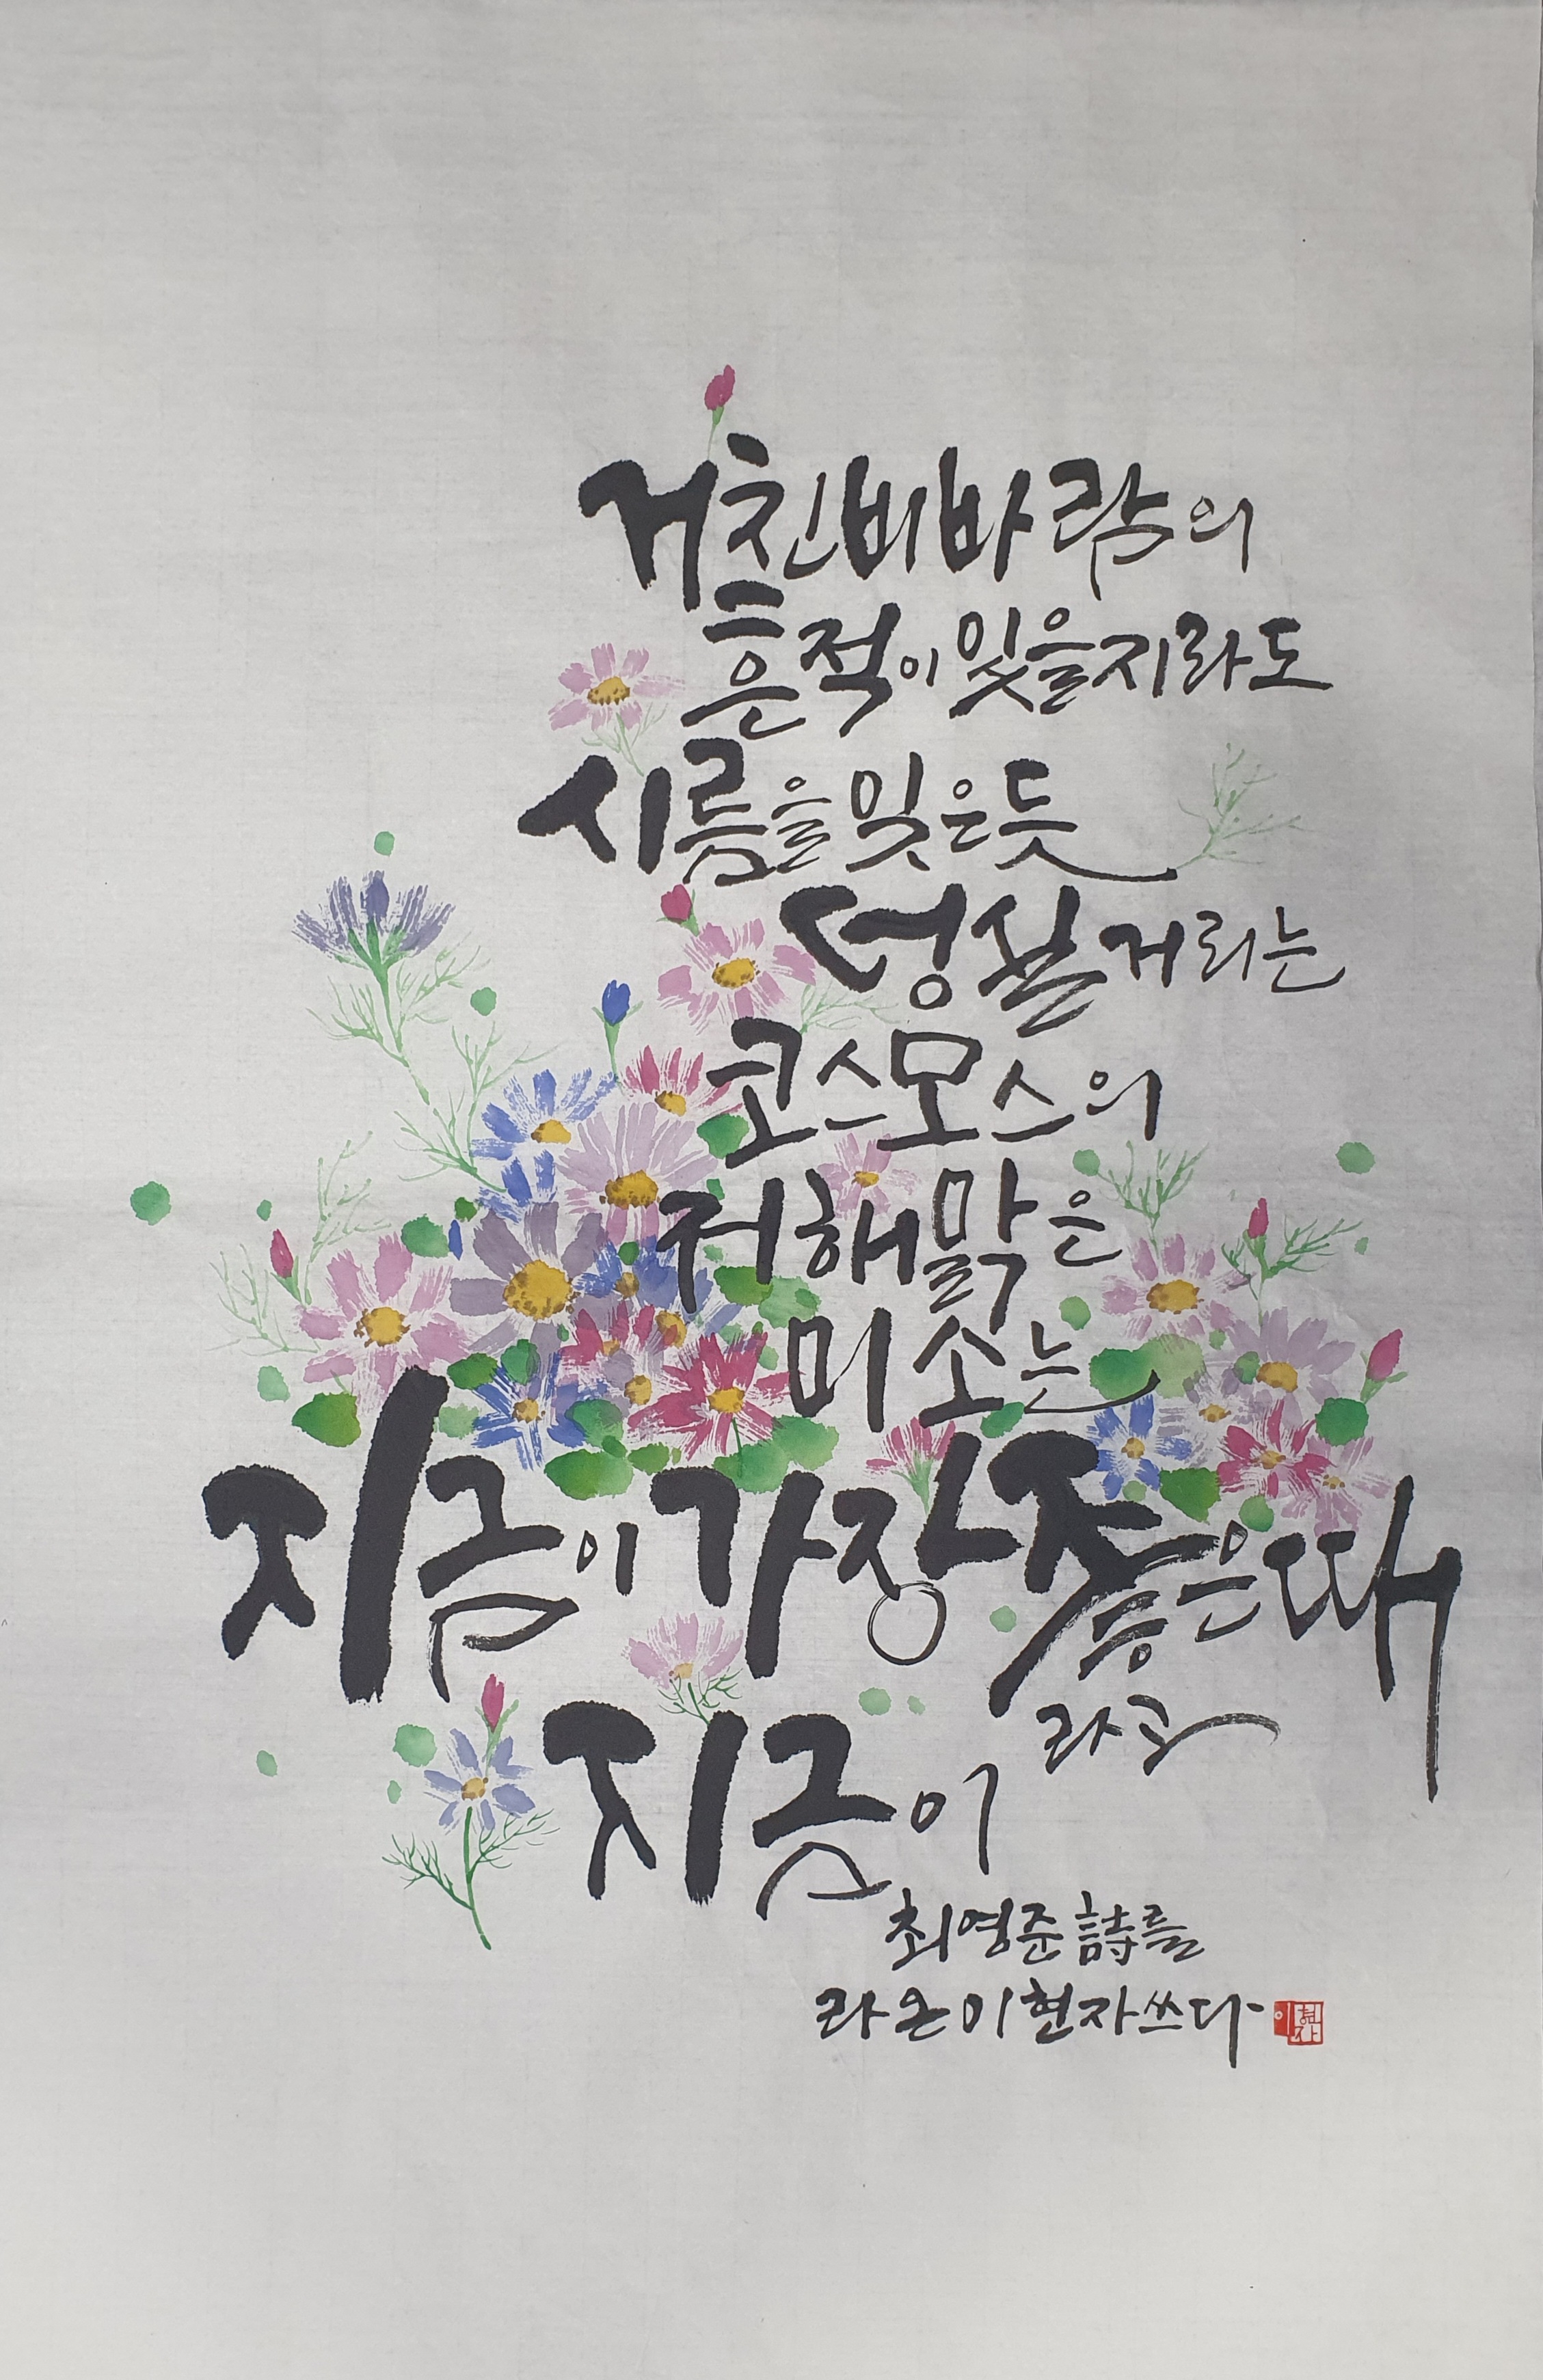 거친 비바람의
흔적이 있을지라도
시름을 잊은 듯
덩실거리는
코스모스의
저 해맑은
미소는
지금이 가장 좋은 때
라고
지긋이
최영준 詩를
라온 이현자 쓰다
이현자